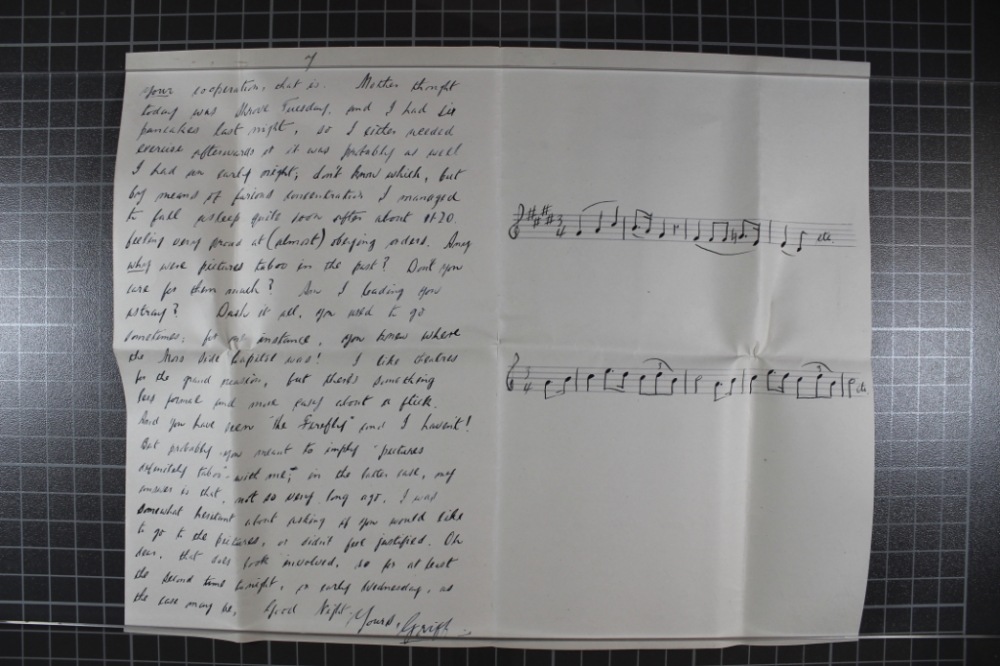 your cooperation, that is. Mother thought
today was Shrove Tuesday, and I had six
pancakes last night, so I either needed
exercise afterwards or it was probably as well
I had an early night; don't know which, but
by means of furious concentration I managed
to fall asleep quite soon after about 11-20.
feeling very proud at (almost) obeying orders. Any
why were pictures taboo in the past? Don't you
care for them much? Am I leading you
astray? Dash it all, you used to go
sometimes; for instance, you knew where
the Moss Side Capitol was! I like theatres
for the grand occasion, but there's something
less formal and more easy about a flick.
And you have seen "The Firefly" and I haven't!
But probably you meant to imply "pictures
definitely taboo - with me"; in the latter case, my
answer is that, not so very long ago, I was
somewhat hesitant about asking if you would like
to go to the pictures, or didn't feel justified. Oh
dear, that does look involved, so for at least
the second time tonight, or early Wednesday, as
the case may be, Good Night.
Yours,
etc.
etc.